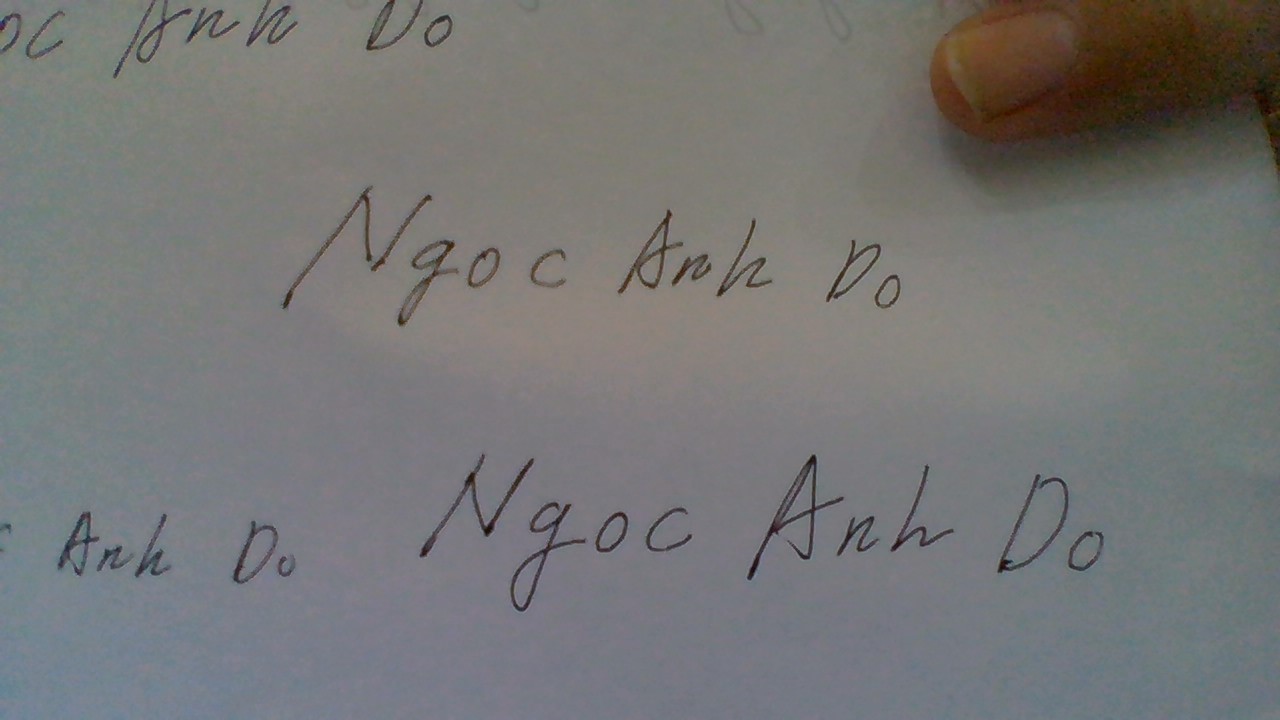 oc Anh Do
Ngoc Anh Do
Anh Do Ngoc Anh Do